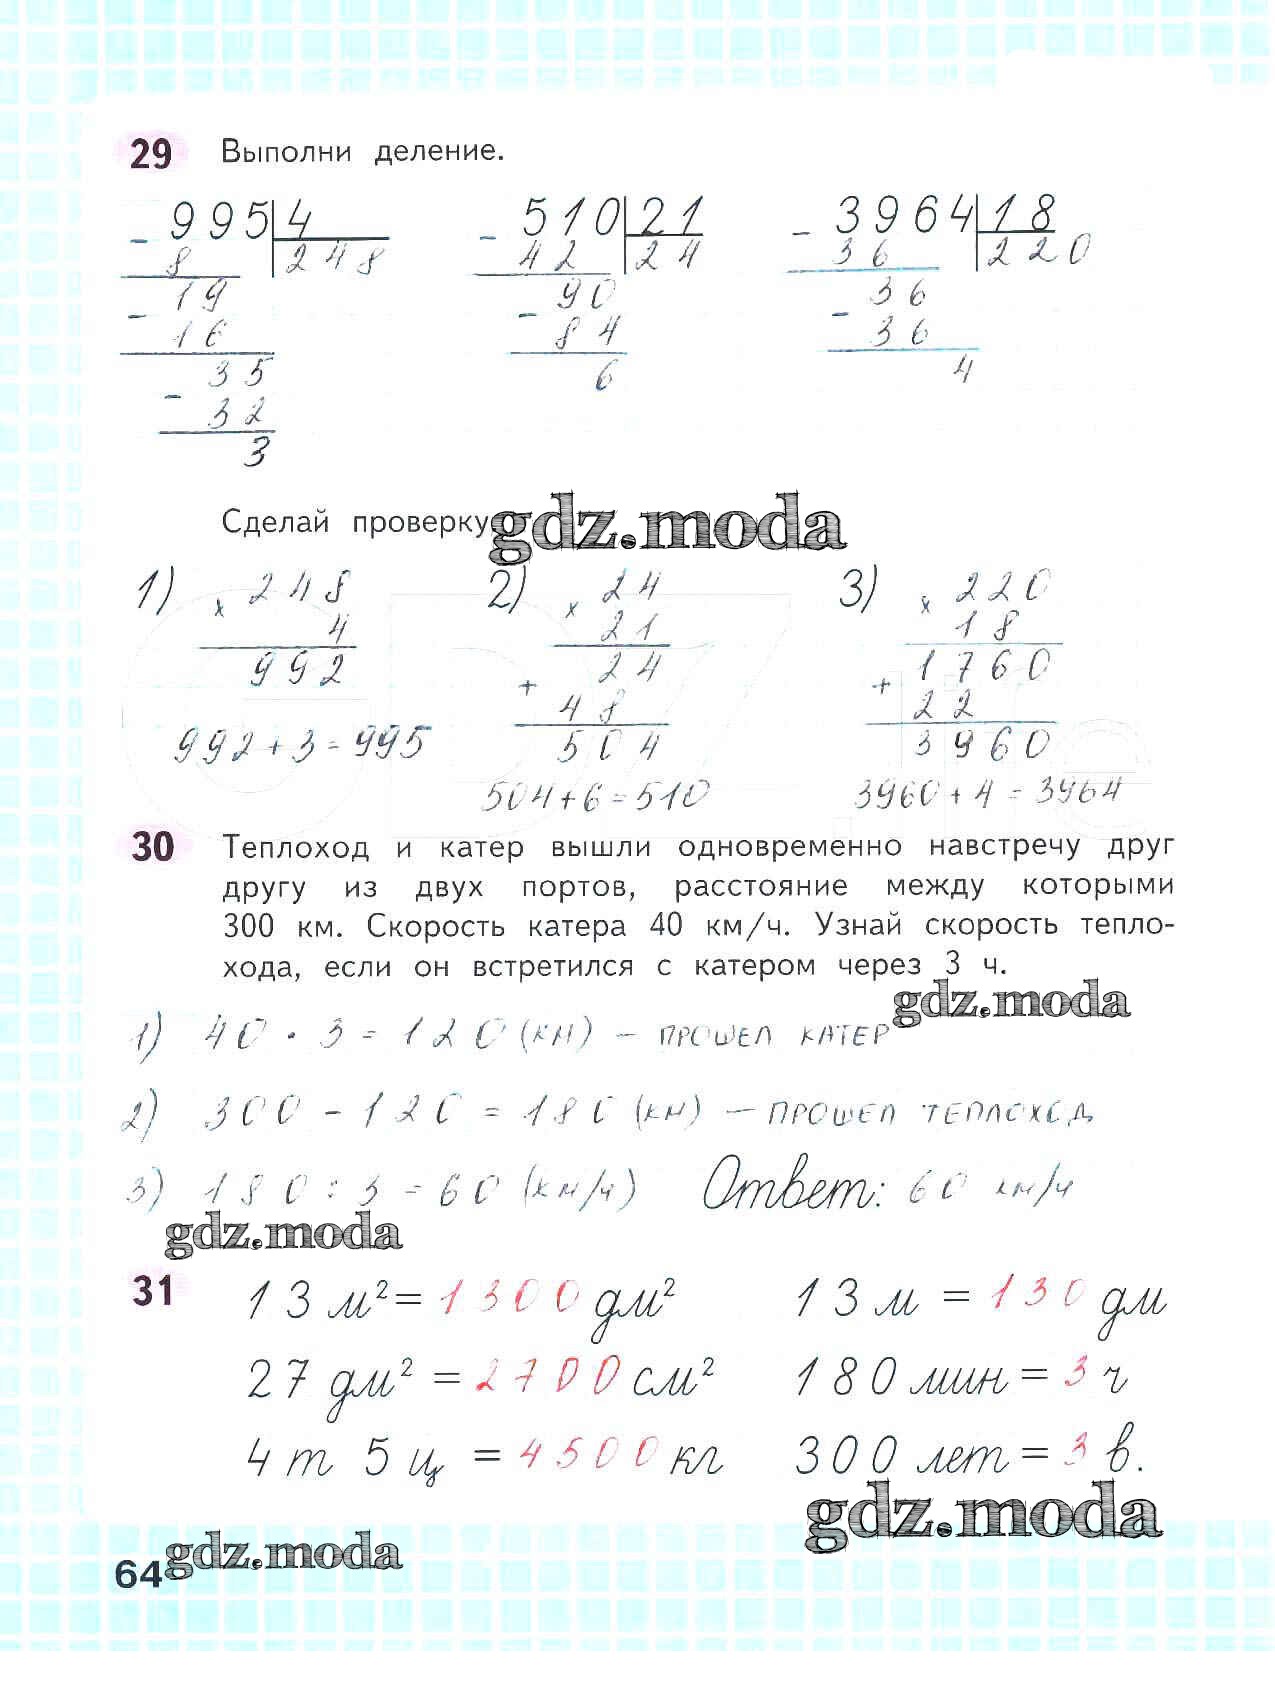 29 Выполни деление.
- 995 | 4   - 510 | 21   - 3964 | 18
8 | 248   42 | 24   36 | 220
- 19   - 90   - 36
16   84   36
35   6   4
- 32
3
Сделай проверку.
gdz.moda
1) × 248   2) × 24   3) × 220
4   21   18
992   + 24   + 1760
48   22
992+3=995   504   3960
504+6=510   3960+4=3964
30 Теплоход и катер вышли одновременно навстречу друг
другу из двух портов, расстояние между которыми
300 км. Скорость катера 40 км/ч. Узнай скорость тепло-
хода, если он встретился с катером через 3 ч.
gdz.moda
1) 40 · 3 = 120 (км) – прошел катер
2) 300 – 120 = 180 (км) – прошел теплоход
3) 180 : 3 = 60 (км/ч)   Ответ: 60 км/ч
gdz.moda
31 13 м² = 1300 дм²   13 м = 130 дм
27 дм² = 2700 см²   180 мин = 3 ч
4 т 5 ц = 4500 кг   300 лет = 3 в.
gdz.moda
64 gdz.moda